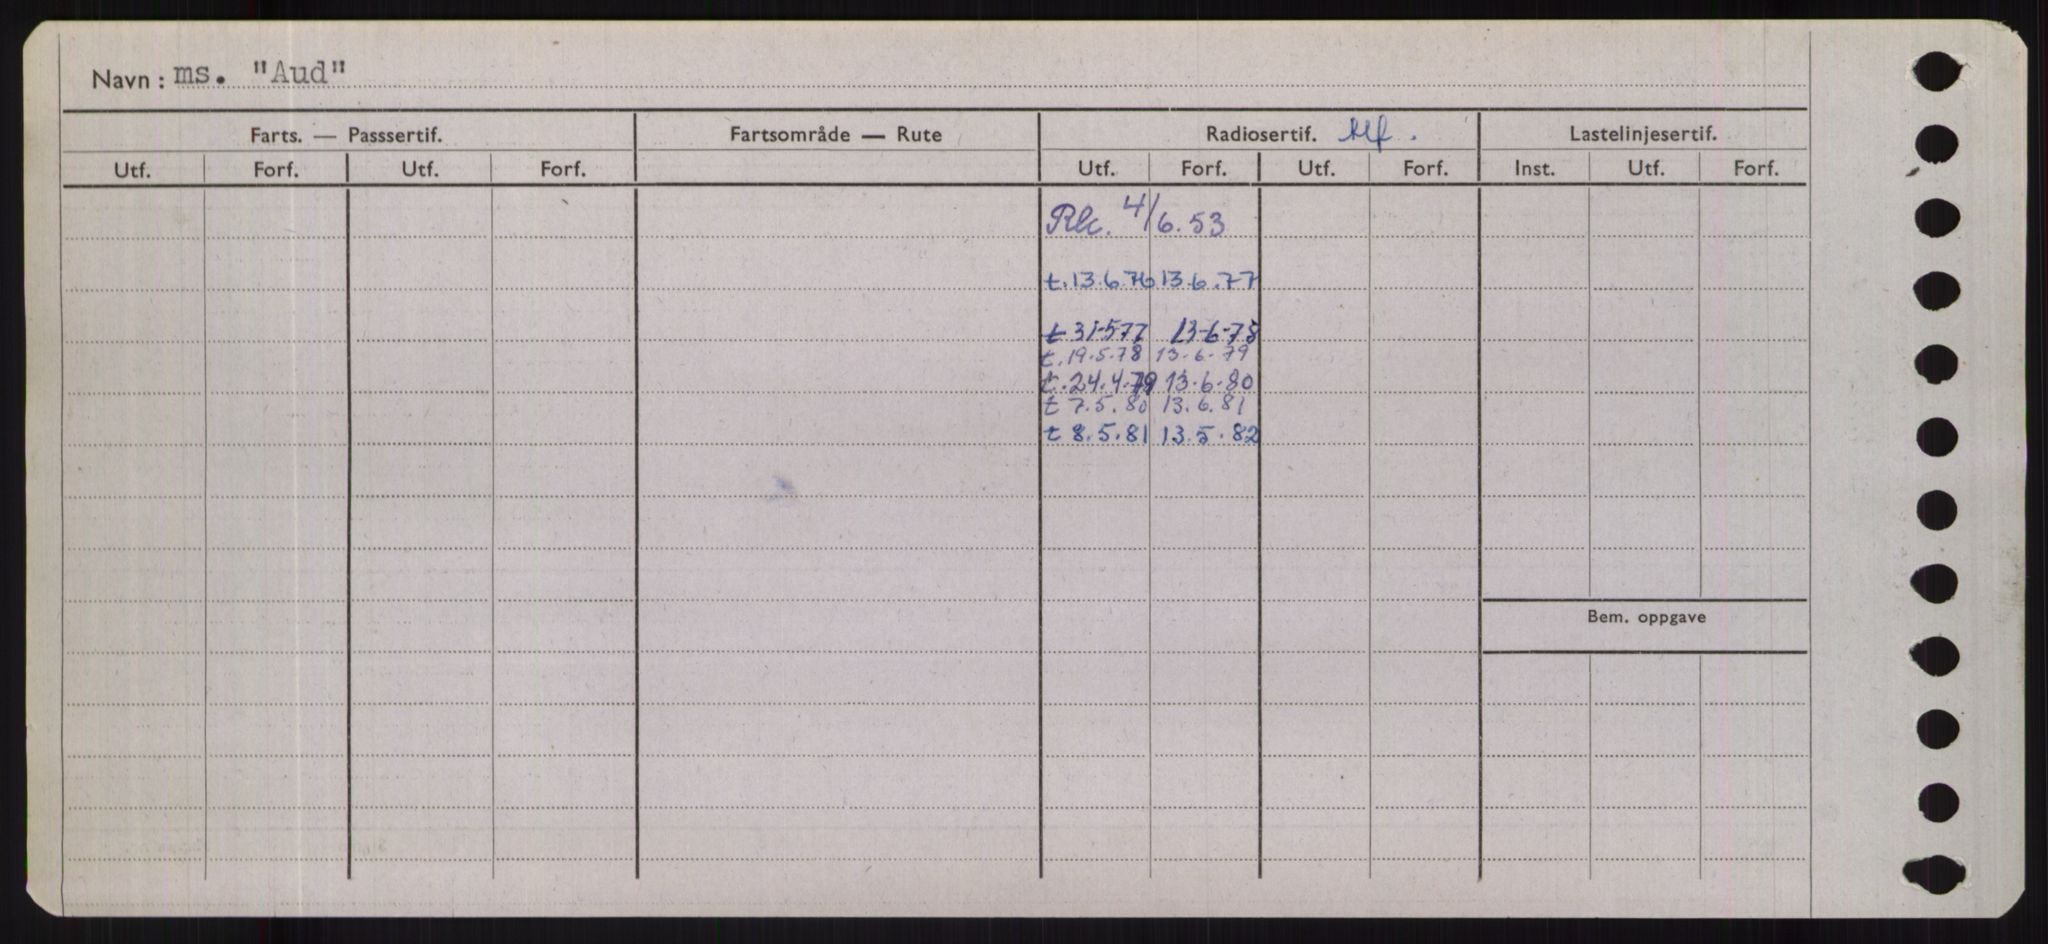 Navn: ms. "Aud"
Farts. — Passsertif. Fartsområde — Rute Radiosertif. Lastelinjesertif.
Utf. Forf. Utf. Forf. Utf. Forf. Utf. Forf. Inst. Utf. Forf.
4/6.53
t. 13.6.76 13.6.77
t 31-5 77 13-6-78
t. 19.5.78 13.6.79
t. 24.4.79 13.6.80
t 7.5.80 13.6.81
t 8.5.81 13.5.82
Bem. oppgave